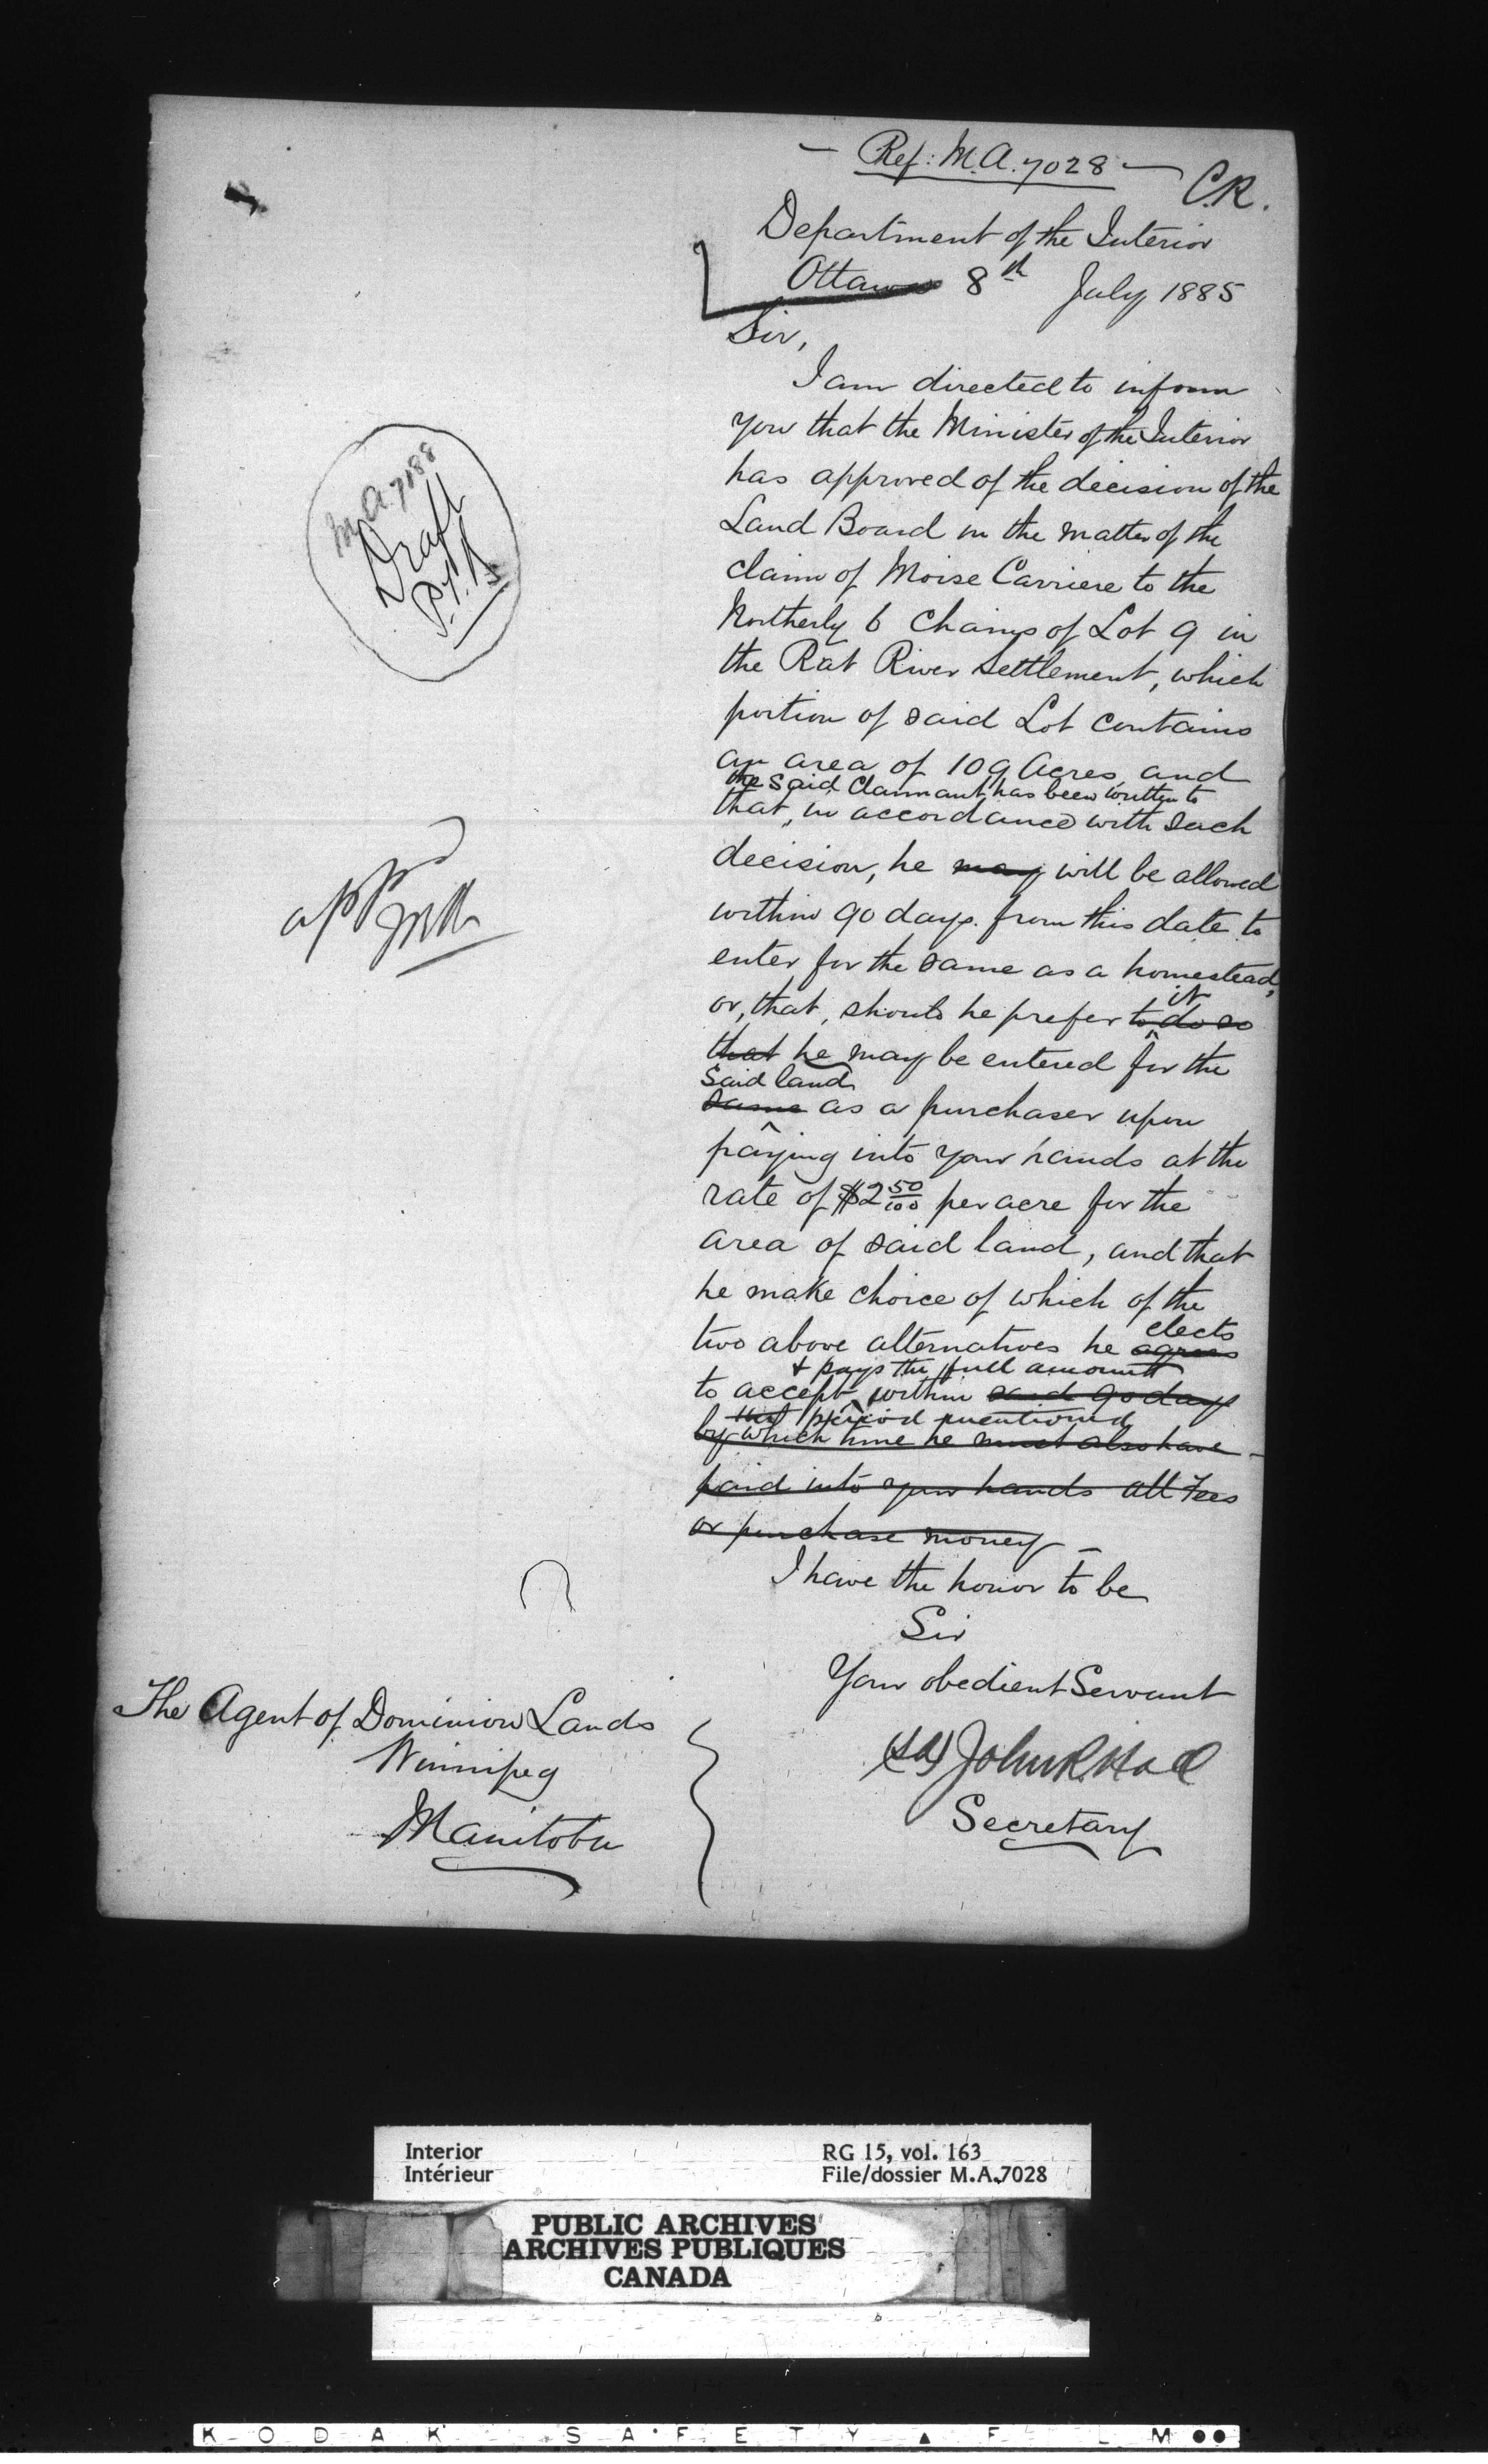 — Ref: M.A. 7028 —
C.R.
Department of the Interior
Ottawa 8th July 1885
Sir,
I am directed to inform
you that the Minister of the Interior
has approved of the decision of the
Land Board in the matter of the
claim of Moise Carriere to the
Northerly 6 Chains of Lot 9 in
the Rat River Settlement, which
portion of said Lot contains
an area of 109 Acres, and
the said Claimant has been written to
that, in accordance with such
decision, he may will be allowed
within 90 days from this date to
enter for the same as a homestead,
it
or, that, should he prefer to do so
that he may be entered for the
Said land
same as a purchaser upon
paying into your hands at the
rate of $2 50/100 per acre for the
area of said land, and that
he make choice of which of the
elects
two above alternatives he agrees
+ pays the full amount
to accept within said 90 days
the period mentioned
by which time he must also have
paid into your hands all Fees
or purchase money —
I have the honor to be
Sir
Your obedient Servant
(sd) John R. Hall
Secretary
M.A. 7188
Draft
app
The Agent of Dominion Lands
Winnipeg
Manitoba
Interior
Intérieur
RG 15, vol. 163
File/dossier M.A.7028
PUBLIC ARCHIVES
ARCHIVES PUBLIQUES
CANADA
KODAK SAFETY FLM